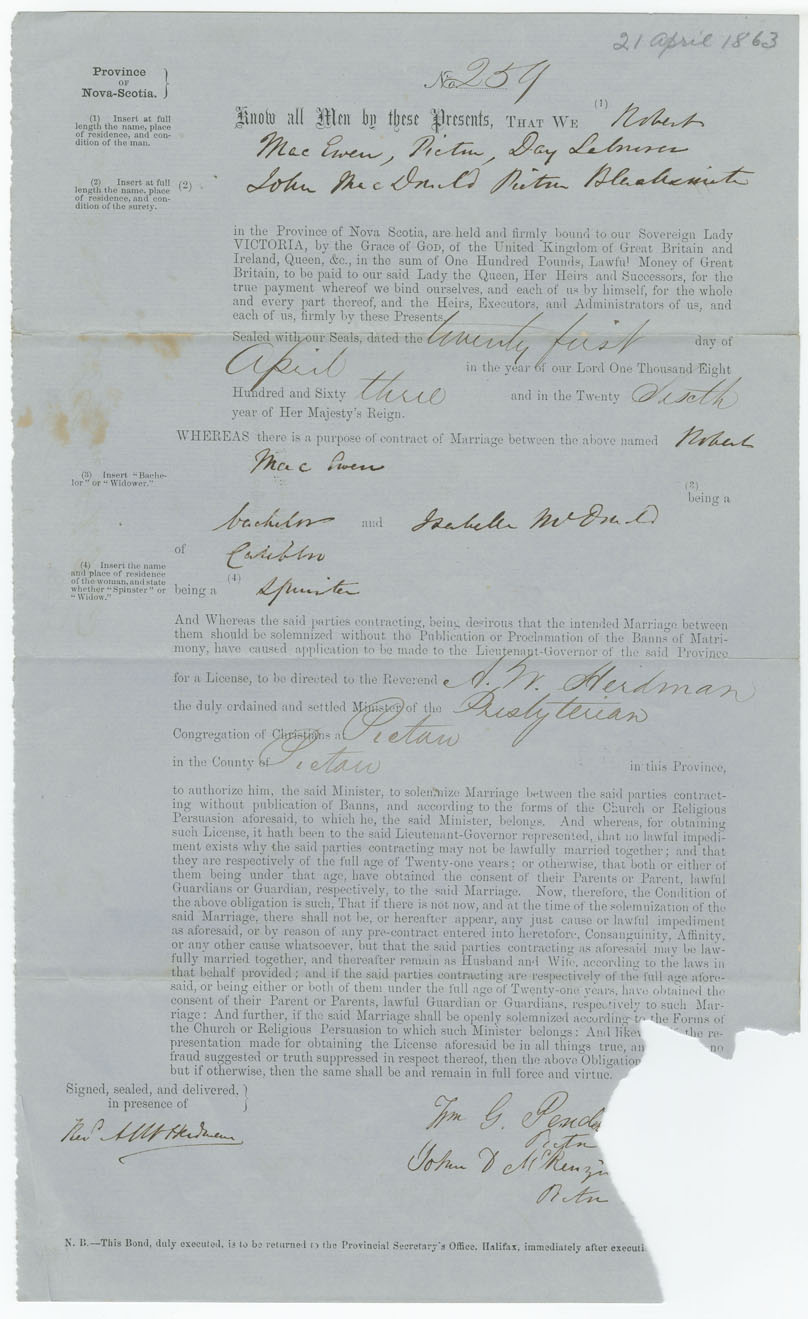 21 april 1863
Province
OF
Nova-Scotia.
No. 259
(1) Insert at full
length the name, place
of residence, and con-
dition of the man.
Know all Men by these Presents, THAT WE (1) Robert
Mac Ewen, Pictou, Day Labourer
(2) Insert at full
length the name, place
of residence, and con-
dition of the surety.
(2) John MacDonald Pictou Blacksmith
in the Province of Nova Scotia, are held and firmly bound to our Sovereign Lady
VICTORIA, by the Grace of GOD, of the United Kingdom of Great Britain and
Ireland, Queen, &c., in the sum of One Hundred Pounds, Lawful Money of Great
Britain, to be paid to our said Lady the Queen, Her Heirs and Successors, for the
true payment whereof we bind ourselves, and each of us by himself, for the whole
and every part thereof, and the Heirs, Executors, and Administrators of us, and
each of us, firmly by these Presents.
Sealed with our Seals, dated the twenty first day of
April in the year of our Lord One Thousand Eight
Hundred and Sixty three and in the Twenty Sixth
year of Her Majesty's Reign.
WHEREAS there is a purpose of contract of Marriage between the above named Robert
Mac Ewen
(3) Insert "Bache-
lor" or "Widower."
(3)
being a
bachelor and Isabella McDonald
of Caribboo
(4) Insert the name
and place of residence
of the woman, and state
whether "Spinster" or
"Widow."
being a (4) Spinster
And Whereas the said parties contracting, being desirous that the intended Marriage between
them should be solemnized without the Publication or Proclamation of the Banns of Matri-
mony, have caused application to be made to the Lieutenant-Governor of the said Province
for a License, to be directed to the Reverend A. W. Herdman
the duly ordained and settled Minister of the Presbyterian
Congregation of Christians at Pictou
in the County of Pictou in this Province,
to authorize him, the said Minister, to solemnize Marriage between the said parties contract-
ing without publication of Banns, and according to the forms of the Church or Religious
Persuasion aforesaid, to which he, the said Minister, belongs. And whereas, for obtaining
such License, it hath been to the said Lieutenant-Governor represented, that no lawful impedi-
ment exists why the said parties contracting may not be lawfully married together; and that
they are respectively of the full age of Twenty-one years; or otherwise, that both or either of
them being under that age, have obtained the consent of their Parents or Parent, lawful
Guardians or Guardian, respectively, to the said Marriage. Now, therefore, the Condition of
the above obligation is such, That if there is not now, and at the time of the solemnization of the
said Marriage, there shall not be, or hereafter appear, any just cause or lawful impediment
as aforesaid, or by reason of any pre-contract entered into heretofore, Consanguinity, Affinity,
or any other cause whatsoever, but that the said parties contracting as aforesaid may be law-
fully married together, and thereafter remain as Husband and Wife, according to the laws in
that behalf provided; and if the said parties contracting are respectively of the full age afore-
said, or being either or both of them under the full age of Twenty-one years, have obtained the
consent of their Parent or Parents, lawful Guardian or Guardians, respectively to such Mar-
riage: And further, if the said Marriage shall be openly solemnized according to the Forms of
the Church or Religious Persuasion to which such Minister belongs: And the re-
presentation made for obtaining the License aforesaid be in all things true, no
fraud suggested or truth suppressed in respect thereof, then the above Obligation
but if otherwise, then the same shall be and remain in full force and virtue.
Signed, sealed, and delivered,
in presence of
Revd A W Herdman
Wm G. Pend
Pictou
John D McKenzie
Pictou
N. B.—This Bond, duly executed, is to be returned to the Provincial Secretary's Office, Halifax, immediately after executi